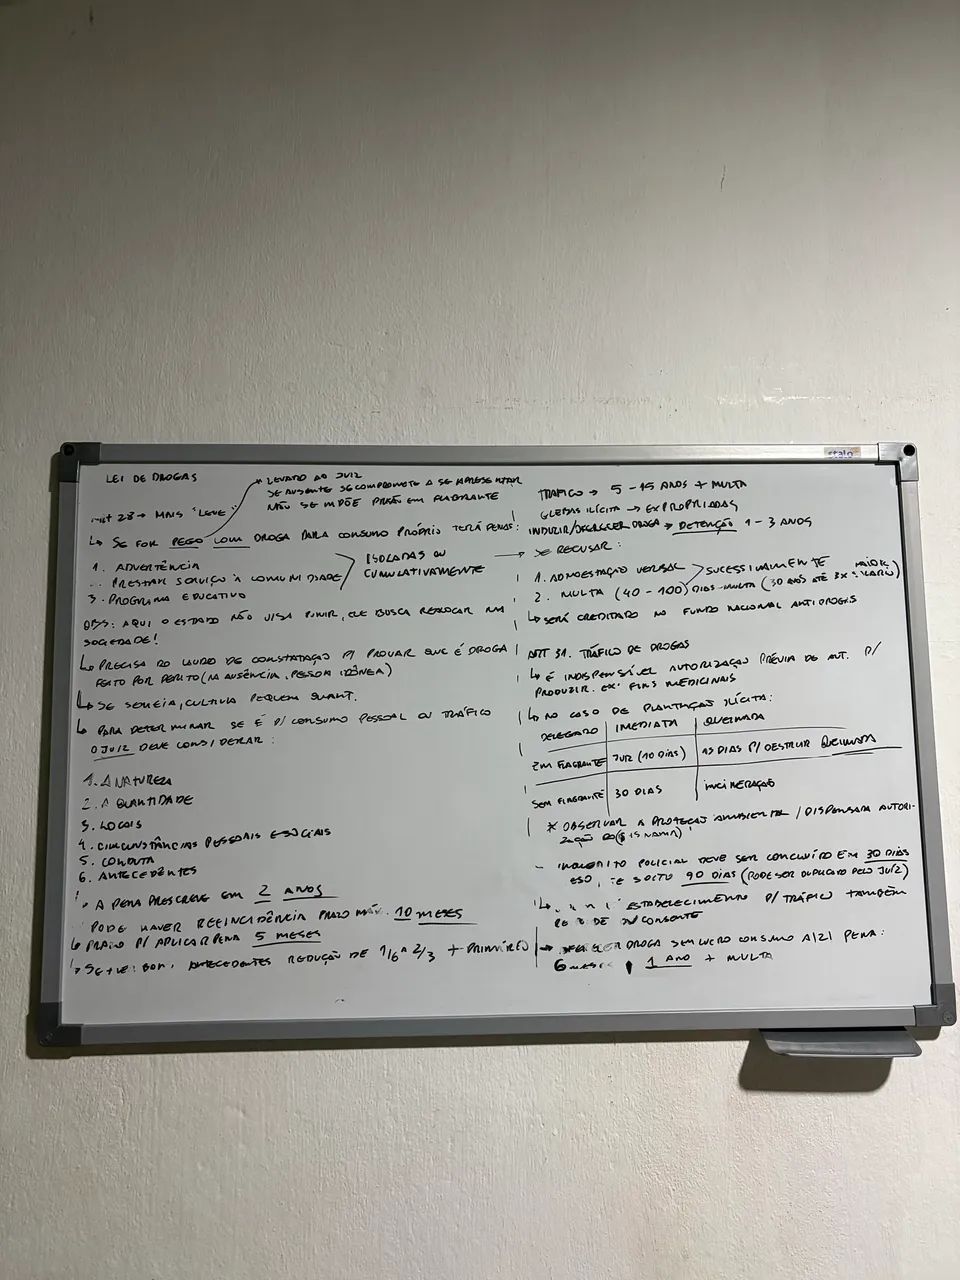 stalo
LEI DE DROGAS
* LEVADO AO JUIZ
SE AUSENTE SE COMPROMETE A SE APRESENTAR
NÃO SE IMPÕE PRISÃO EM FLAGRANTE
28 → MAIS "LEVE"
↳ SE FOR PEGO COM DROGA PARA CONSUMO PRÓPRIO TERÁ PENAS:
1. ADVERTÊNCIA
PRESTAR SERVIÇO À COMUNIDADE
3. PROGRAMA EDUCATIVO
ISOLADAS OU
CUMULATIVAMENTE
OBS: AQUI O ESTADO NÃO VISA PUNIR, ELE BUSCA NA
SOCIEDADE!
↳ PRECISA DO LAUDO DE CONSTATAÇÃO P/ PROVAR QUE É DROGA
FEITO POR PERITO (NA AUSÊNCIA, PESSOA IDÔNEA)
↳ SE SEMEIA, CULTIVA PEQUEM QUANT.
↳ PARA DETERMINAR SE É P/ CONSUMO PESSOAL OU TRÁFICO
O JUIZ DEVE CONSIDERAR:
1. A NATUREZA
2. A QUANTIDADE
3. LOCAIS
4. CIRCUNSTÂNCIAS PESSOAIS E SOCIAIS
5. CONDUTA
6. ANTECEDENTES
A PENA PRESCREVE EM 2 ANOS
PODE HAVER REEINCIDÊNCIA PRAZO 10 MESES
↳ PRAZO P/ APLICAR PENA 5 MESES
ANTECEDENTES REDUÇÃO DE 1/6 A 2/3 + PRIMÁRIO
TRÁFICO → 5 - 15 ANOS + MULTA
GLEBAS ILÍCITA → EXPROPRIADAS
INDUZIR/ DROGA → DETENÇÃO 1 - 3 ANOS
→ SE RECUSAR:
1. ADMOESTAÇÃO VERBAL
2. MULTA (40 - 100) DIAS-MULTA (30 AVOS ATÉ 3X
SUCESSIVAMENTE
↳ SERÁ CREDITADO NO FUNDO NACIONAL ANTIDROGAS
ART 31. TRÁFICO DE DROGAS
↳ É INDISPENSÁVEL AUTORIZAÇÃO PRÉVIA DE AUT. P/
PRODUZIR. EX: FINS MEDICINAIS
↳ NO CASO DE PLANTAÇÃO ILÍCITA:
DELEGADO IMEDIATA QUEIMADA
EM FLAGRANTE JUIZ (10 DIAS) 15 DIAS P/ DESTRUIR QUEIMADA
SEM FLAGRANTE 30 DIAS INCINERAÇÃO
* OBSERVAR A PROTEÇÃO AMBIENTAL / DISPENSADA AUTORI-
ZAÇÃO DO
INQUÉRITO POLICIAL DEVE SER CONCLUÍDO EM 30 DIAS
SOLTO 90 DIAS (PODE SER DUPLICADO PELO JUÍZ)
ESTABELECIMENTO P/ TRÁFICO TAMBÉM
DROGA SEM LUCRO CONSUMO PENA:
6 1 ANO + MULTA